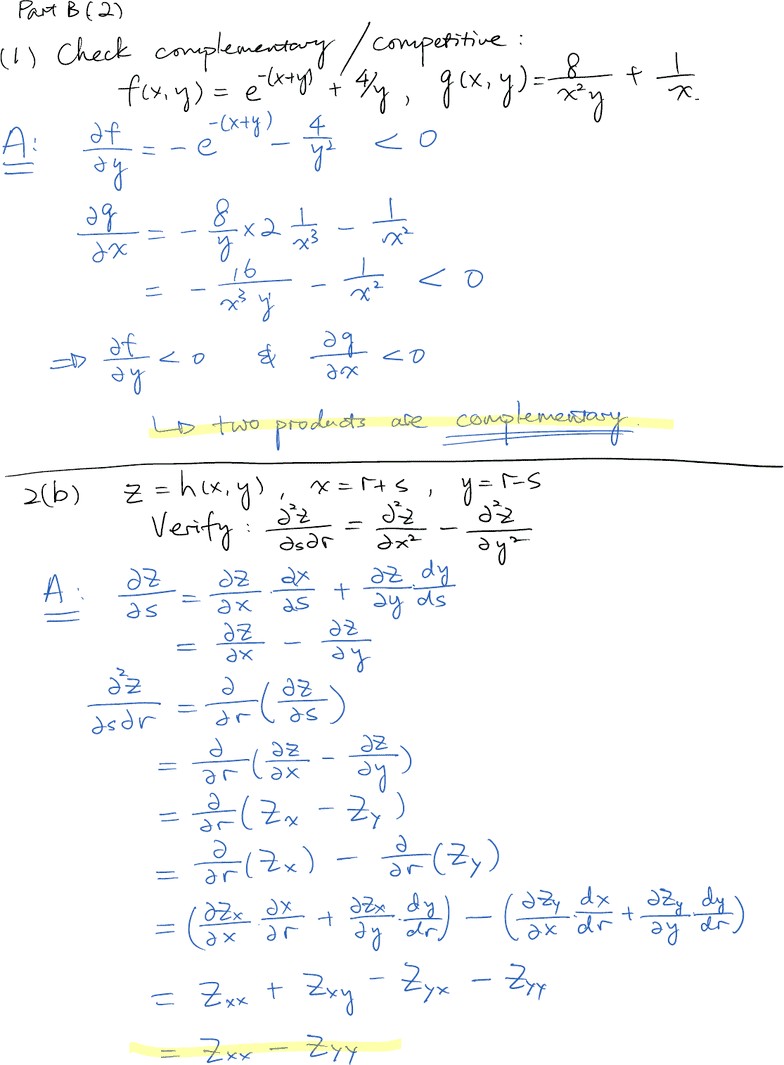 Part B (2)
(1) Check complementary / competitive :
f(x, y) = e^{-(x+y)} + 4/y , g(x, y) = \frac{8}{x^2 y} + \frac{1}{x}.
A: \frac{∂f}{∂y} = - e^{-(x+y)} - \frac{4}{y^2} < 0
\frac{∂g}{∂x} = - \frac{8}{y} × 2 \frac{1}{x^3} - \frac{1}{x^2}
= - \frac{16}{x^3 y} - \frac{1}{x^2} < 0
⇒ \frac{∂f}{∂y} < 0 & \frac{∂g}{∂x} < 0
↳ two products are complementary.
2(b) z = h(x, y) , x = r+s , y = r-s
Verify : \frac{∂^2 z}{∂s∂r} = \frac{∂^2 z}{∂x^2} - \frac{∂^2 z}{∂y^2}
A : \frac{∂z}{∂s} = \frac{∂z}{∂x} \frac{∂x}{∂s} + \frac{∂z}{∂y} \frac{dy}{ds}
= \frac{∂z}{∂x} - \frac{∂z}{∂y}
\frac{∂^2 z}{∂s∂r} = \frac{∂}{∂r} ( \frac{∂z}{∂s} )
= \frac{∂}{∂r} ( \frac{∂z}{∂x} - \frac{∂z}{∂y} )
= \frac{∂}{∂r} ( Z_x - Z_y )
= \frac{∂}{∂r} ( Z_x ) - \frac{∂}{∂r} ( Z_y )
= ( \frac{∂Z_x}{∂x} · \frac{∂x}{∂r} + \frac{∂Z_x}{∂y} · \frac{dy}{dr} ) - ( \frac{∂Z_y}{∂x} · \frac{dx}{dr} + \frac{∂Z_y}{∂y} · \frac{dy}{dr} )
= Z_{xx} + Z_{xy} - Z_{yx} - Z_{yy}
= Z_{xx} - Z_{yy}